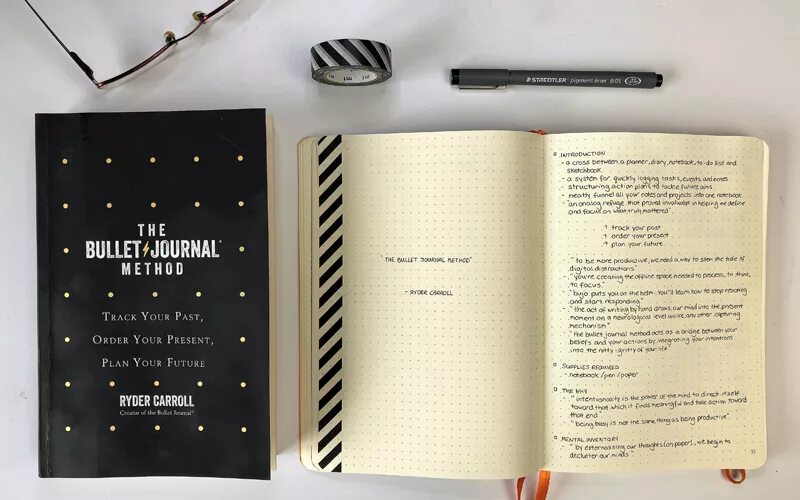 THE
BULLET JOURNAL®
METHOD
TRACK YOUR PAST,
ORDER YOUR PRESENT,
PLAN YOUR FUTURE
RYDER CARROLL
Creator of the Bullet Journal®
mt
STAEDTLER pigment liner 0.05
"THE BULLET JOURNAL METHOD"
- RYDER CARROLL
INTRODUCTION
- a cross between a planner, diary, notebook, to-do list and
sketchbook
- a system for quickly logging tasks, events and notes
- structuring action plans to tackle future aims
- neatly funnel all your notes and projects into one notebook
- "an analog refuge that proved invaluable in helping me define
and focus on what truly mattered"
→ track your past
→ order your present
→ plan your future
- "to be more productive, we need a way to stem the tide of
digital distractions"
- "you're creating the offline space needed to process, to think,
to focus"
- "bujo puts you at the helm. You'll learn how to stop reacting
and start responding"
- "the act of writing by hand draws our mind into the present
moment on a neurological level unlike any other capturing
mechanism"
- "the bullet journal method acts as a bridge between your
beliefs and your actions by integrating your intentions
into the nitty-gritty of your life"
SUPPLIES REQUIRED
- notebook / pen / paper
THE WHY
- "intentionality is the power of the mind to direct itself
toward that which it finds meaningful and take action toward
that end"
- "being busy is not the same as being productive"
MENTAL INVENTORY
- "by externalising our thoughts (on paper), we begin to
declutter our minds"